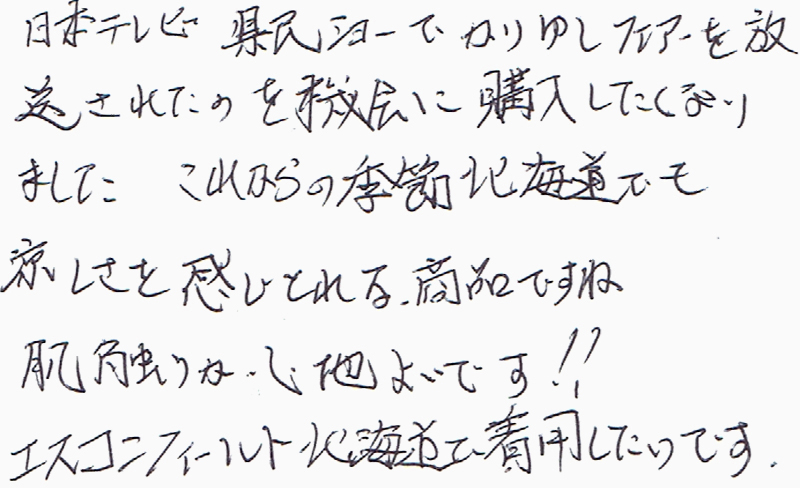 日本テレビ 県民ショーで かりゆしフェアーを放
送されたのを機会に購入したくなり
ました これからの季節北海道でも
涼しさを感じとれる.商品ですね
肌触りが心地よいです!!
エスコンフィールド北海道で着用したいです.